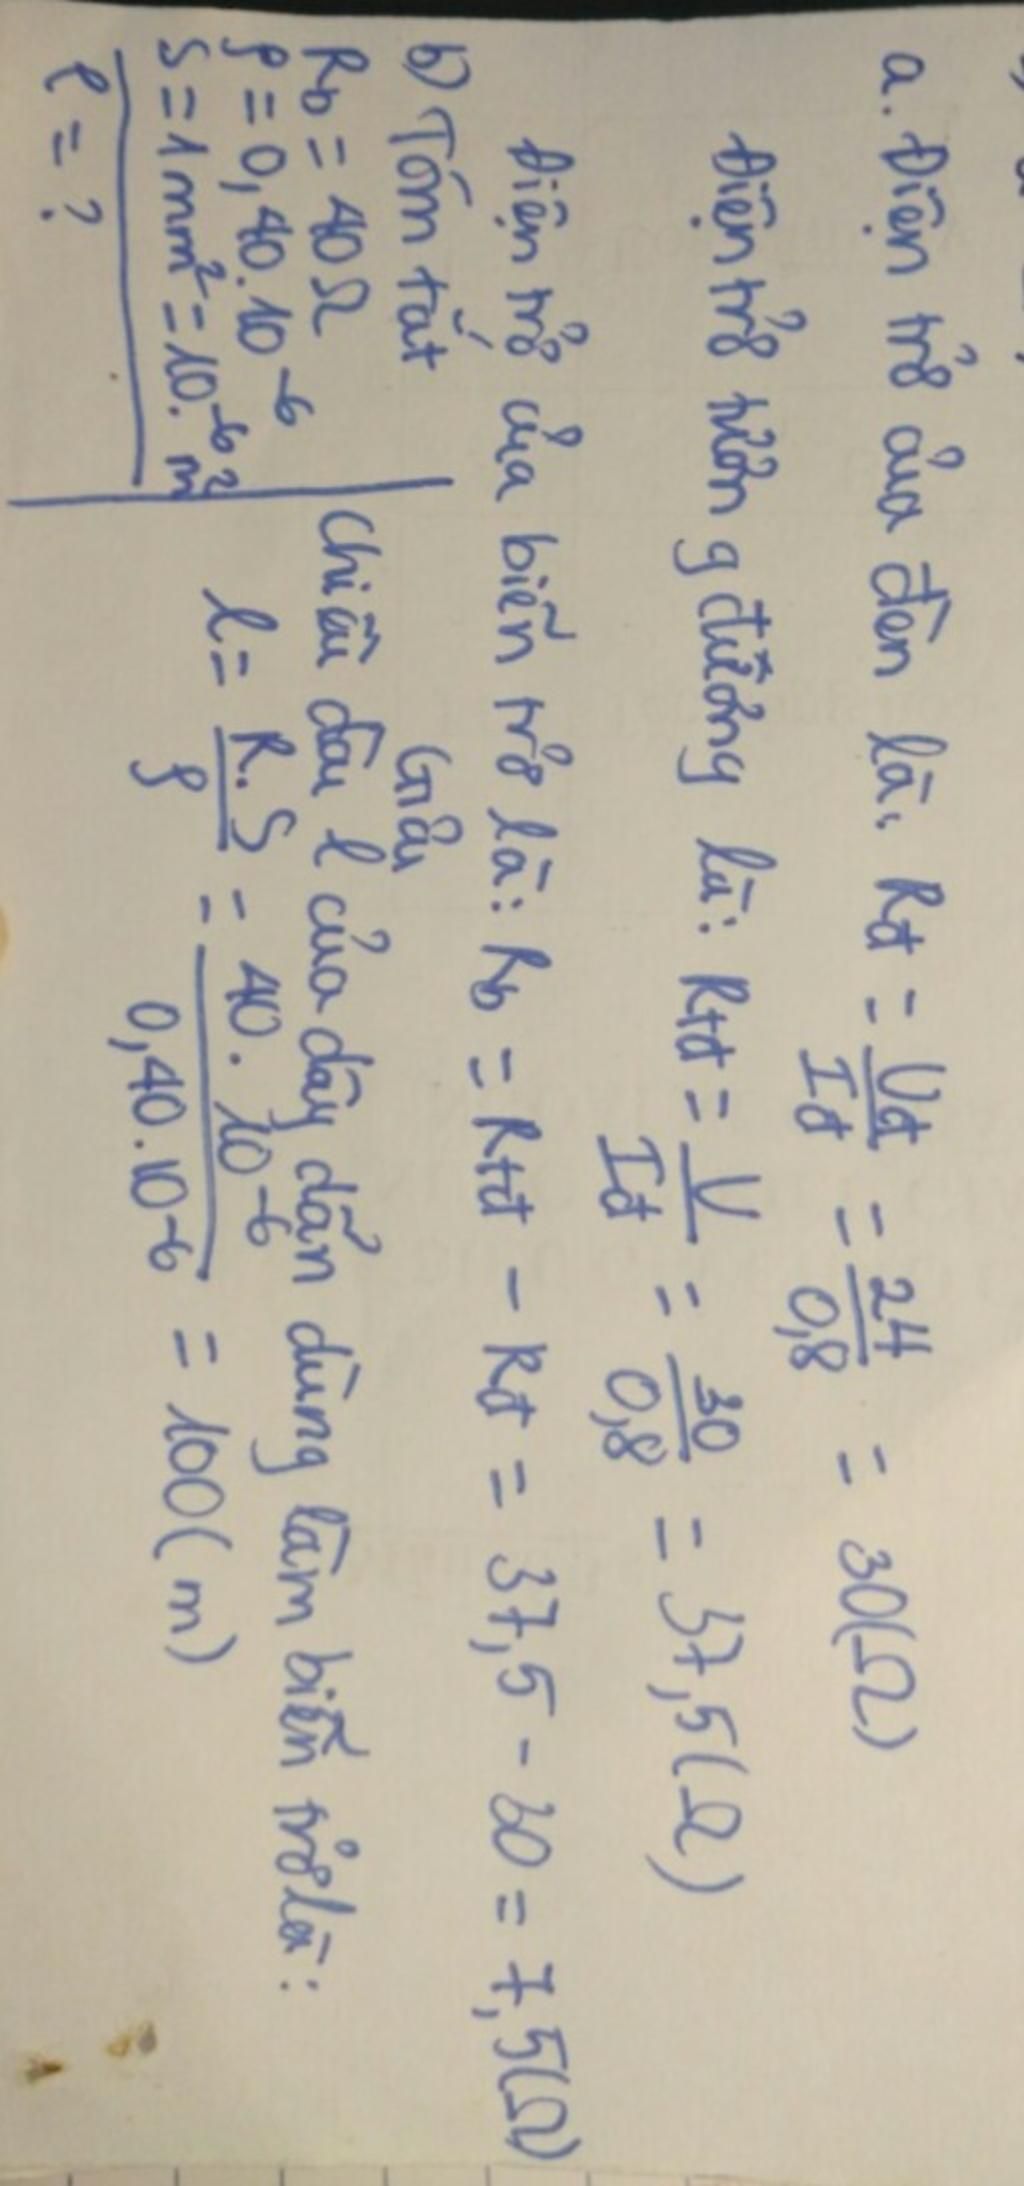 a. Điện trở của đèn là: Rđ = Uđ/Iđ = 24/0,8 = 30(Ω)
Điện trở tương đương là: Rtđ = U/Iđ = 30/0,8 = 37,5(Ω)
Điện trở của biến trở là: Rb = Rtđ - Rđ = 37,5 - 30 = 7,5(Ω)
b) Tóm tắt
Rb = 40Ω
ρ = 0,40.10⁻⁶
S = 1mm² = 10.⁻⁶ m²
l = ?
Giải
Chiều dài l của dây dẫn dùng làm biến trở là:
l = R.S/ρ = 40.10⁻⁶/0,40.10⁻⁶ = 100(m)